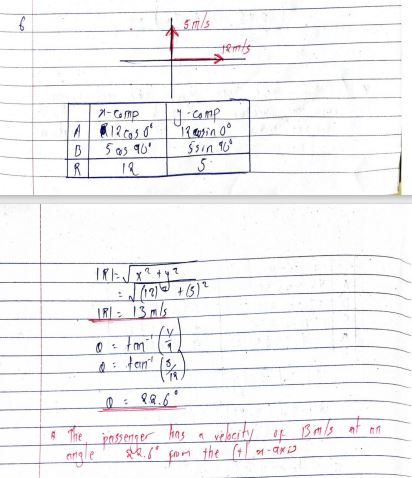 6
5 m/s
12 m/s
x-comp y-comp
A 12 cos 0° 12 sin 0°
B 5 cos 90° 5 sin 90°
R 12 5
|R| = √x² + y²
= √(12)² + (5)²
|R| = 13 m/s
θ = tan⁻¹ (y/x)
θ = tan⁻¹ (5/12)
θ = 22.6°
The passenger has a velocity of 13 m/s at an
angle 22.6° from the (+) x-axis